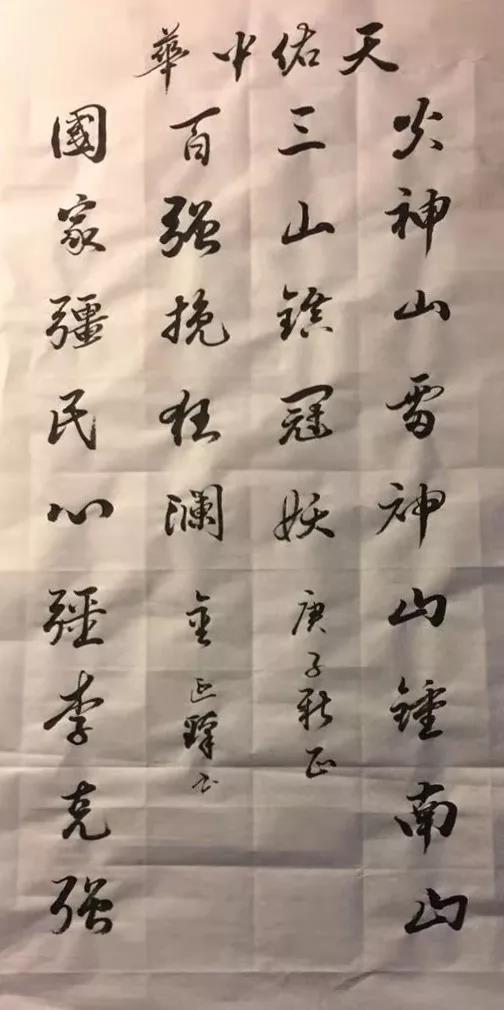 天佑中華
火神山雷神山鍾南山
三山鎮冠妖 庚子新正
百强挽狂瀾
國家彊民心彊李克强